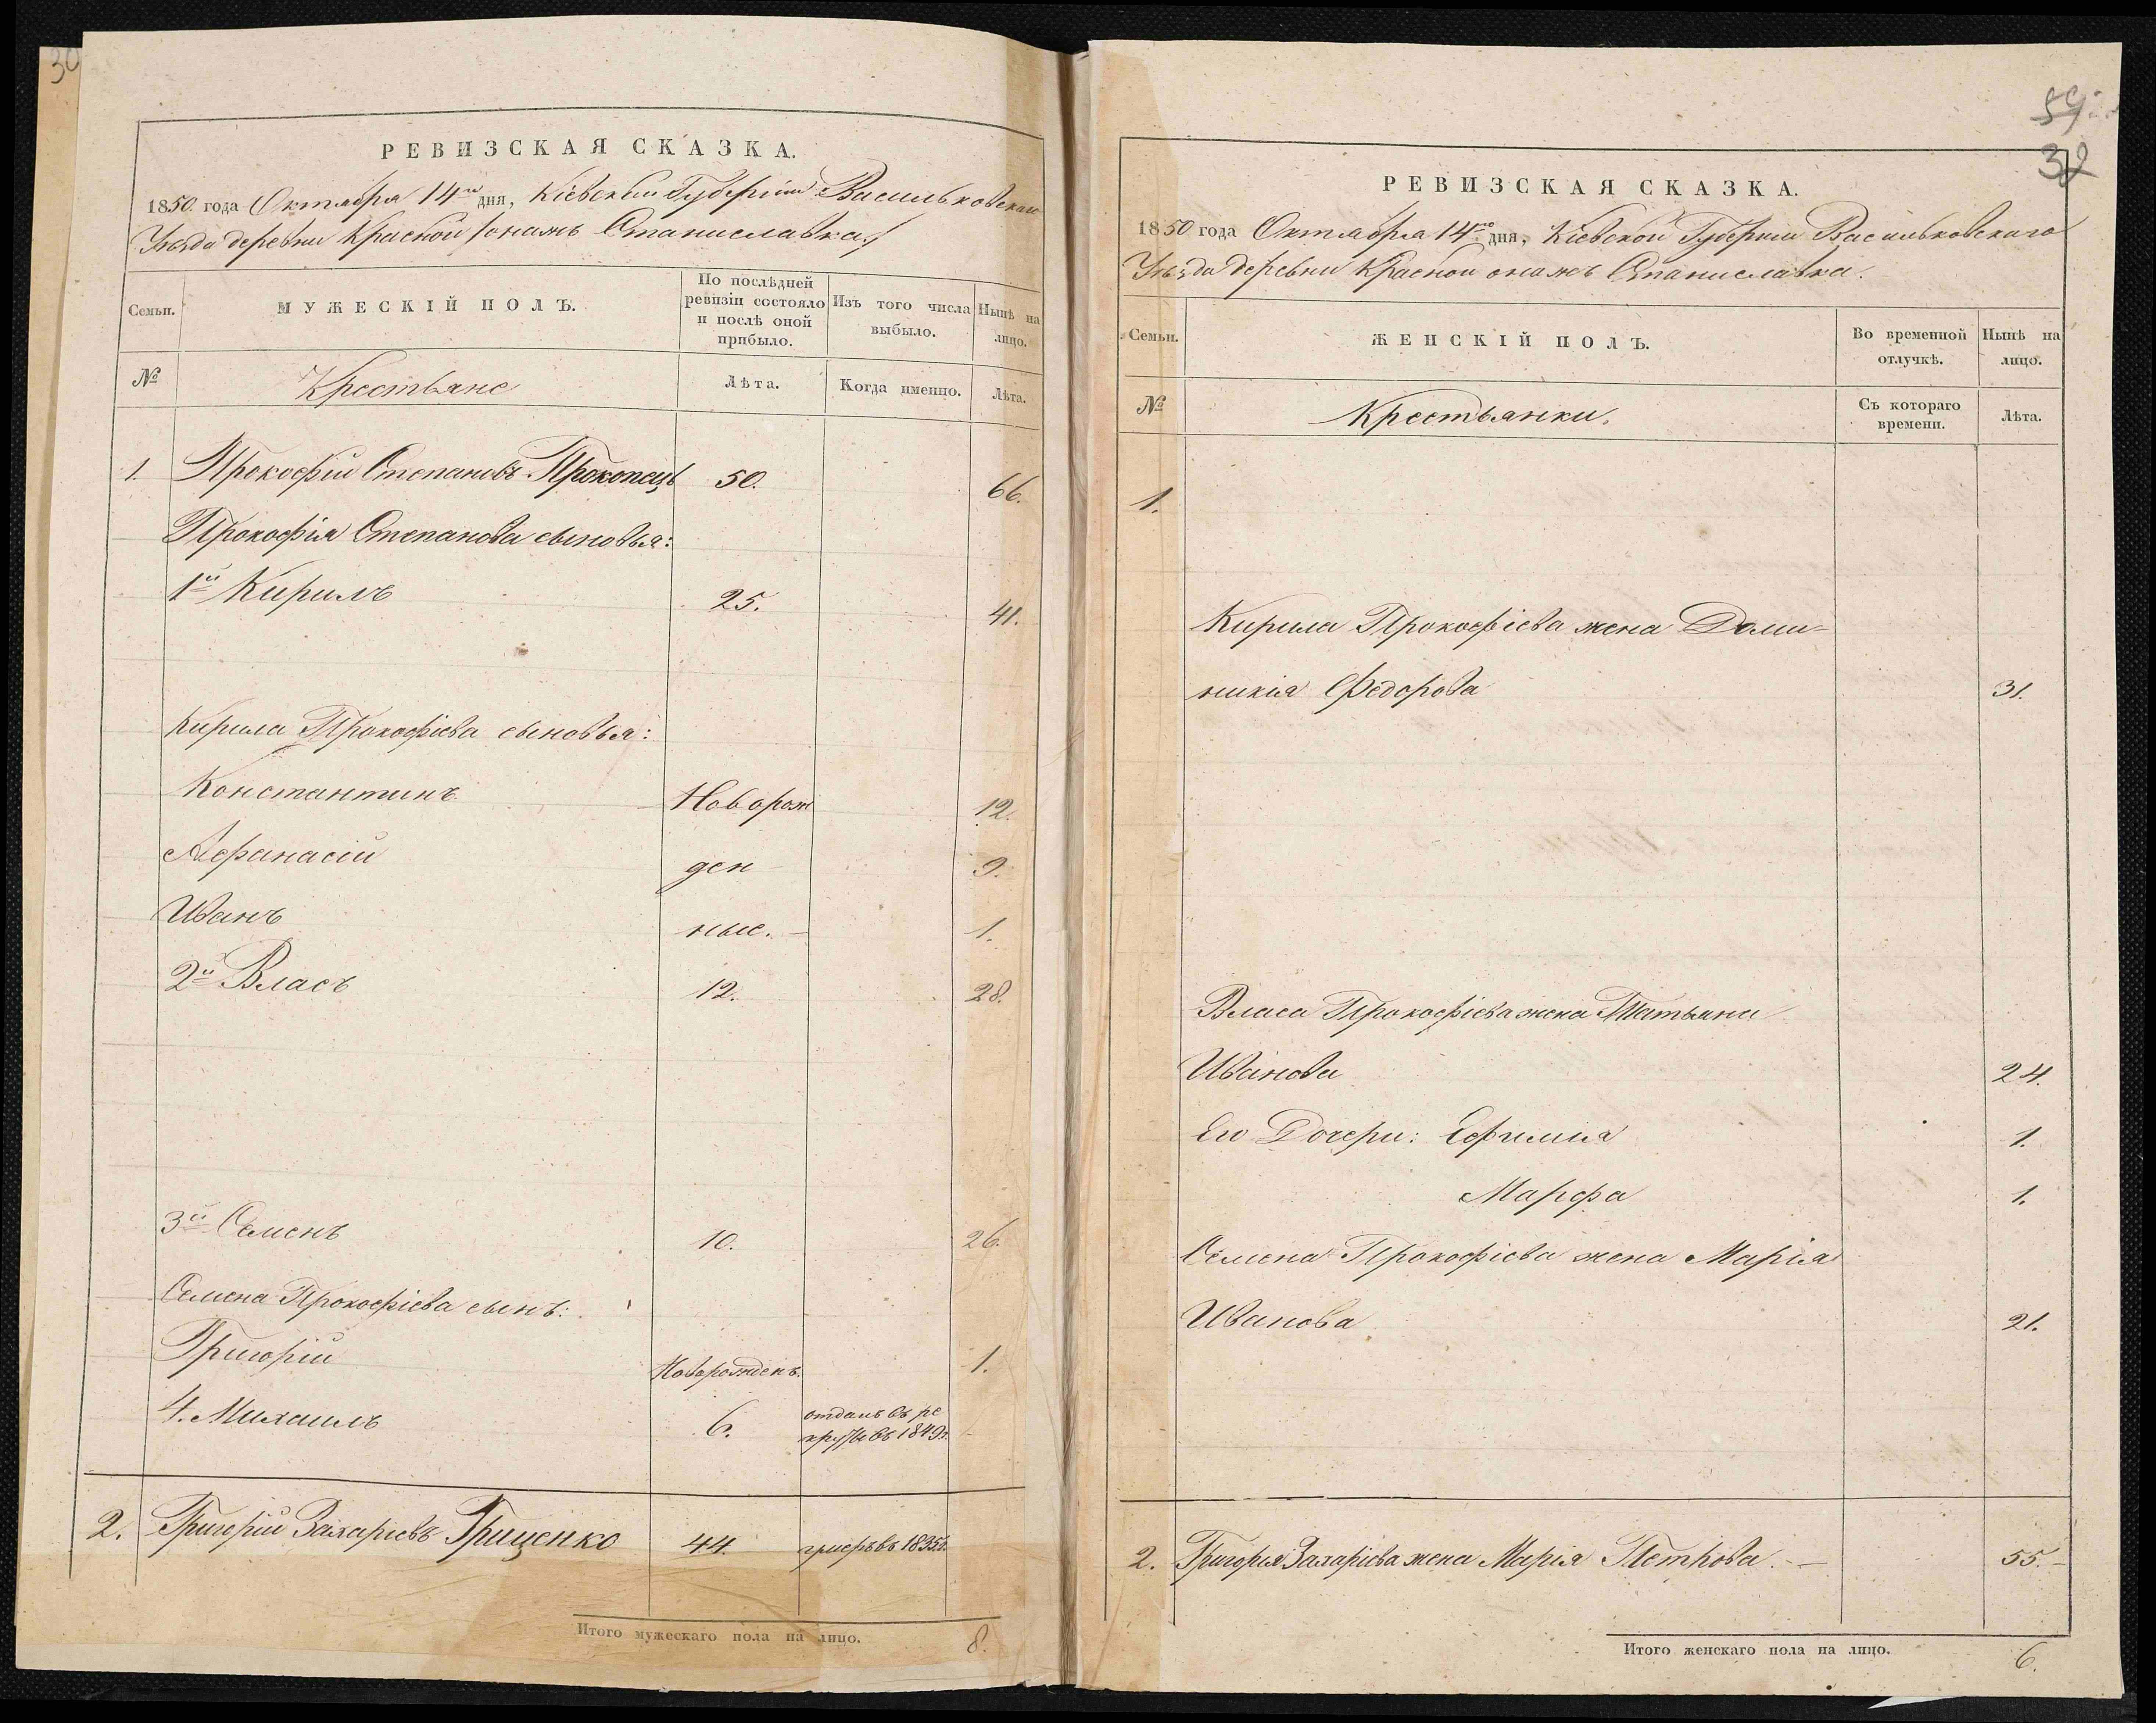 30
РЕВИЗСКАЯ СКАЗКА.
1850 года Октября 14го дня, Кіевской Губерніи Васильковскаго
Уѣзда деревни Красной /онажъ Станиславка/
Семьи.
МУЖЕСКІЙ ПОЛЪ.
По послѣдней ревизіи состояло и послѣ оной прибыло.
Изъ того числа выбыло.
Нынѣ на лицо.
№
Крестьяне
Лѣта.
Когда именно.
Лѣта.
1. Прокофій Степановъ Прокопецъ 50. 66.
Прокофія Степанова сыновья:
1й Кирилъ 25. 41.
Кирила Прокофіева сыновья:
Константинъ Новорож 12.
Афанасій ден 9.
Иванъ ные. 1.
2й Власъ 12. 28.
3й Семенъ 10. 26.
Семена Прокофіева сынъ:
Григорій Новорожденъ. 1.
4. Михаилъ 6. отданъ въ ре
круты въ 1849г.
2. Григорій Захаріевъ Грищенко 44. умеръ въ 1835г.
Итого мужескаго пола на лицо. 8.
59
32
РЕВИЗСКАЯ СКАЗКА.
1850 года Октября 14го дня, Кіевской Губерніи Васильковскаго
Уѣзда деревни Красной онажъ Станиславка.
Семьи.
ЖЕНСКІЙ ПОЛЪ.
Во временной отлучкѣ.
Нынѣ на лицо.
№
Крестьянки.
Съ котораго времени.
Лѣта.
1.
Кирила Прокофіева жена Доми-
никія Федорова 31.
Власа Прокофіева жена Татьяна
Иванова 24.
Его Дочери: Ефимія 1.
Марфа 1.
Семена Прокофіева жена Марія
Иванова 21.
2. Григорія Захаріева жена Марія Петрова. 55.
Итого женскаго пола на лицо. 6.